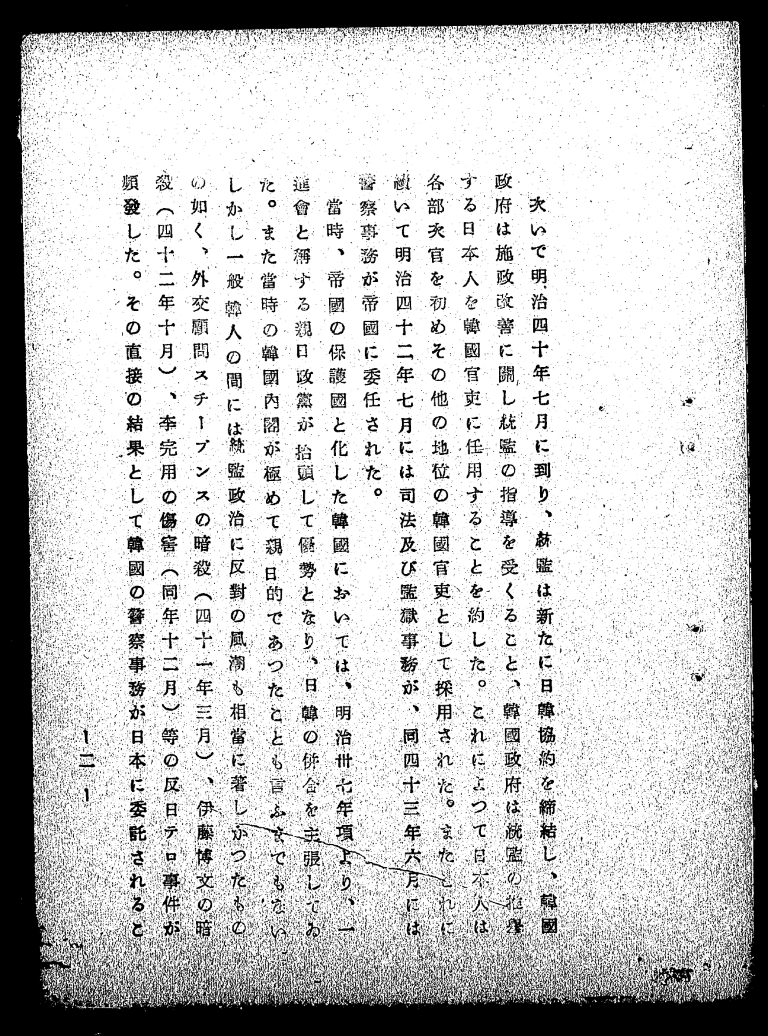 次いで明治四十年七月に到り、統監は新たに日韓協約を締結し、韓國
政府は施政改善に關し統監の指導を受くること、韓國政府は統監の推擧
する日本人を韓國官吏に任用することを約した。これによつて日本人は
各部次官を初めその他の地位の韓國官吏として採用された。またこれに
續いて明治四十二年七月には司法及び監獄事務が、同四十三年六月には
警察事務が帝國に委任された。
當時、帝國の保護國と化した韓國においては、明治卅七年項より、一
進會と稱する親日政黨が抬頭して優勢となり、日韓の併合を主張してゐ
た。また當時の韓國內閣が極めて親日的であつたことも言ふまでもない
しかし一般韓人の間には統監政治に反對の風潮も相當に著しかつたもの
の如く、外交顧問スチーブンスの暗殺（四十一年三月）、伊藤博文の暗
殺（四十二年十月）、李完用の傷害（同年十二月）等の反日テロ事件が
頻發した。その直接の結果として韓國の警察事務が日本に委託されるこ
ー二ー